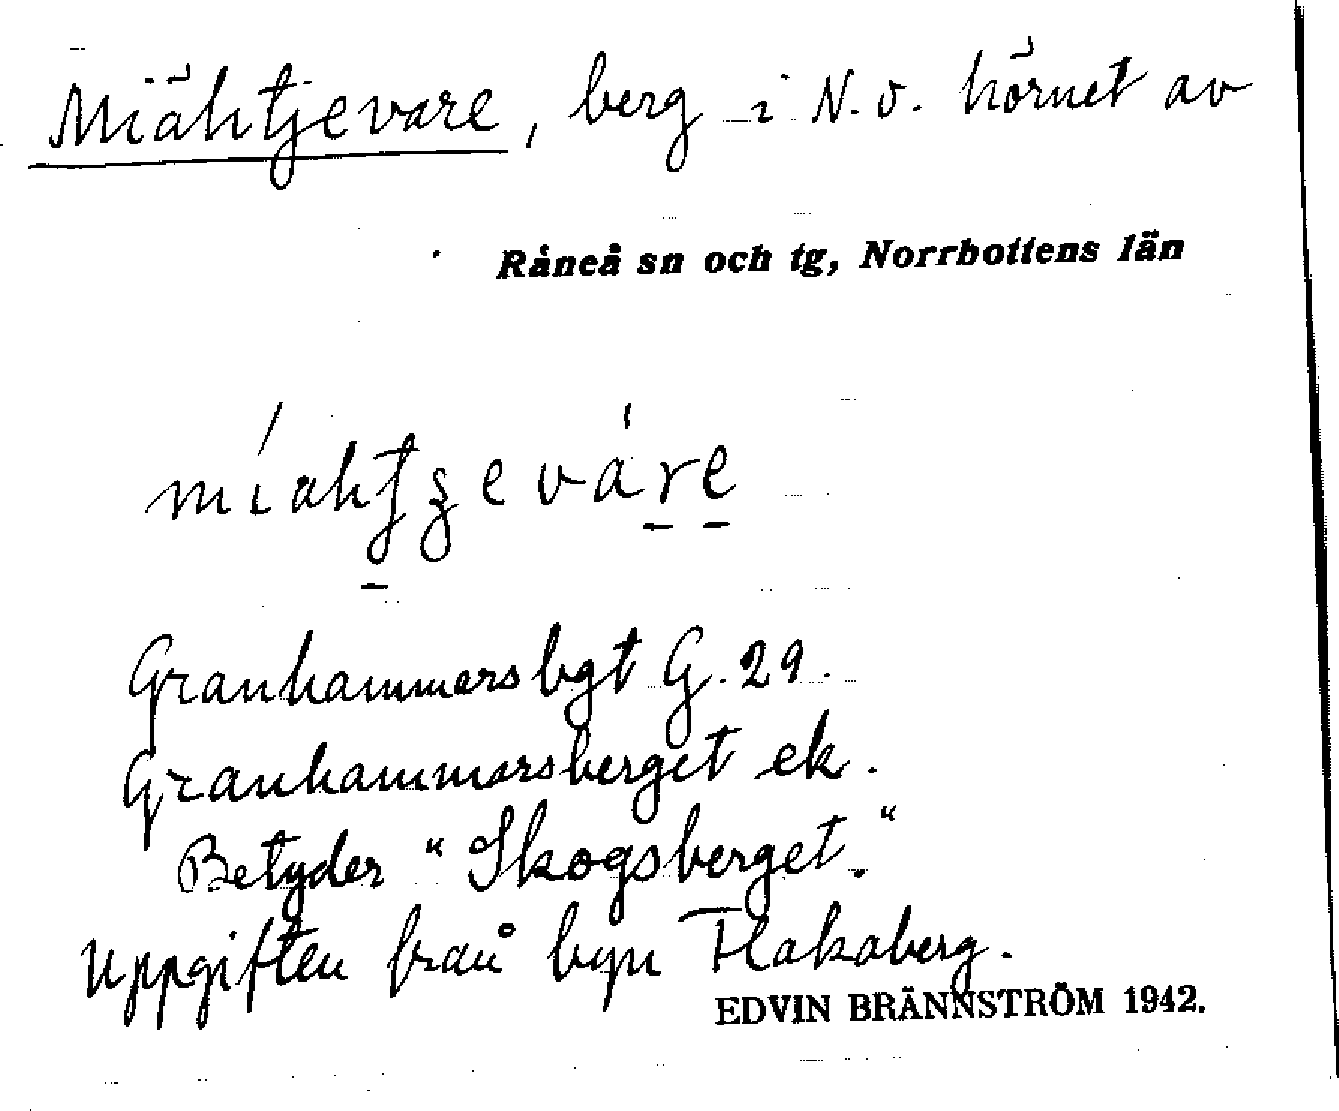 Miähtjevare, berg i N.v. hörnet av
Råneå sn och tg, Norrbottens län
míahtʒeváre
Granhammersbgt G. 29.
Granhammersberget ek.
Betyder "Skogsberget."
Uppgiften från byn Flakaberg.
EDVIN BRÄNNSTRÖM 1942.